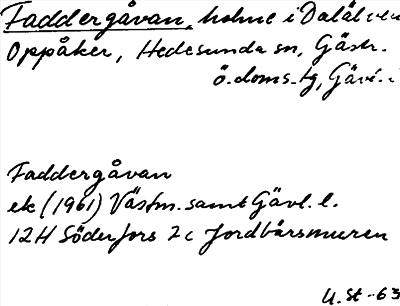 Faddergåvan, holme i Dalälven
Oppåker, Hedesunda sn, Gästr.
ö. doms. tg, Gävl. l
Faddergåvan
ek (1961) Västm. samt Gävl. l.
12H Söderfors 2c Jordbärsmuren
U. St -63